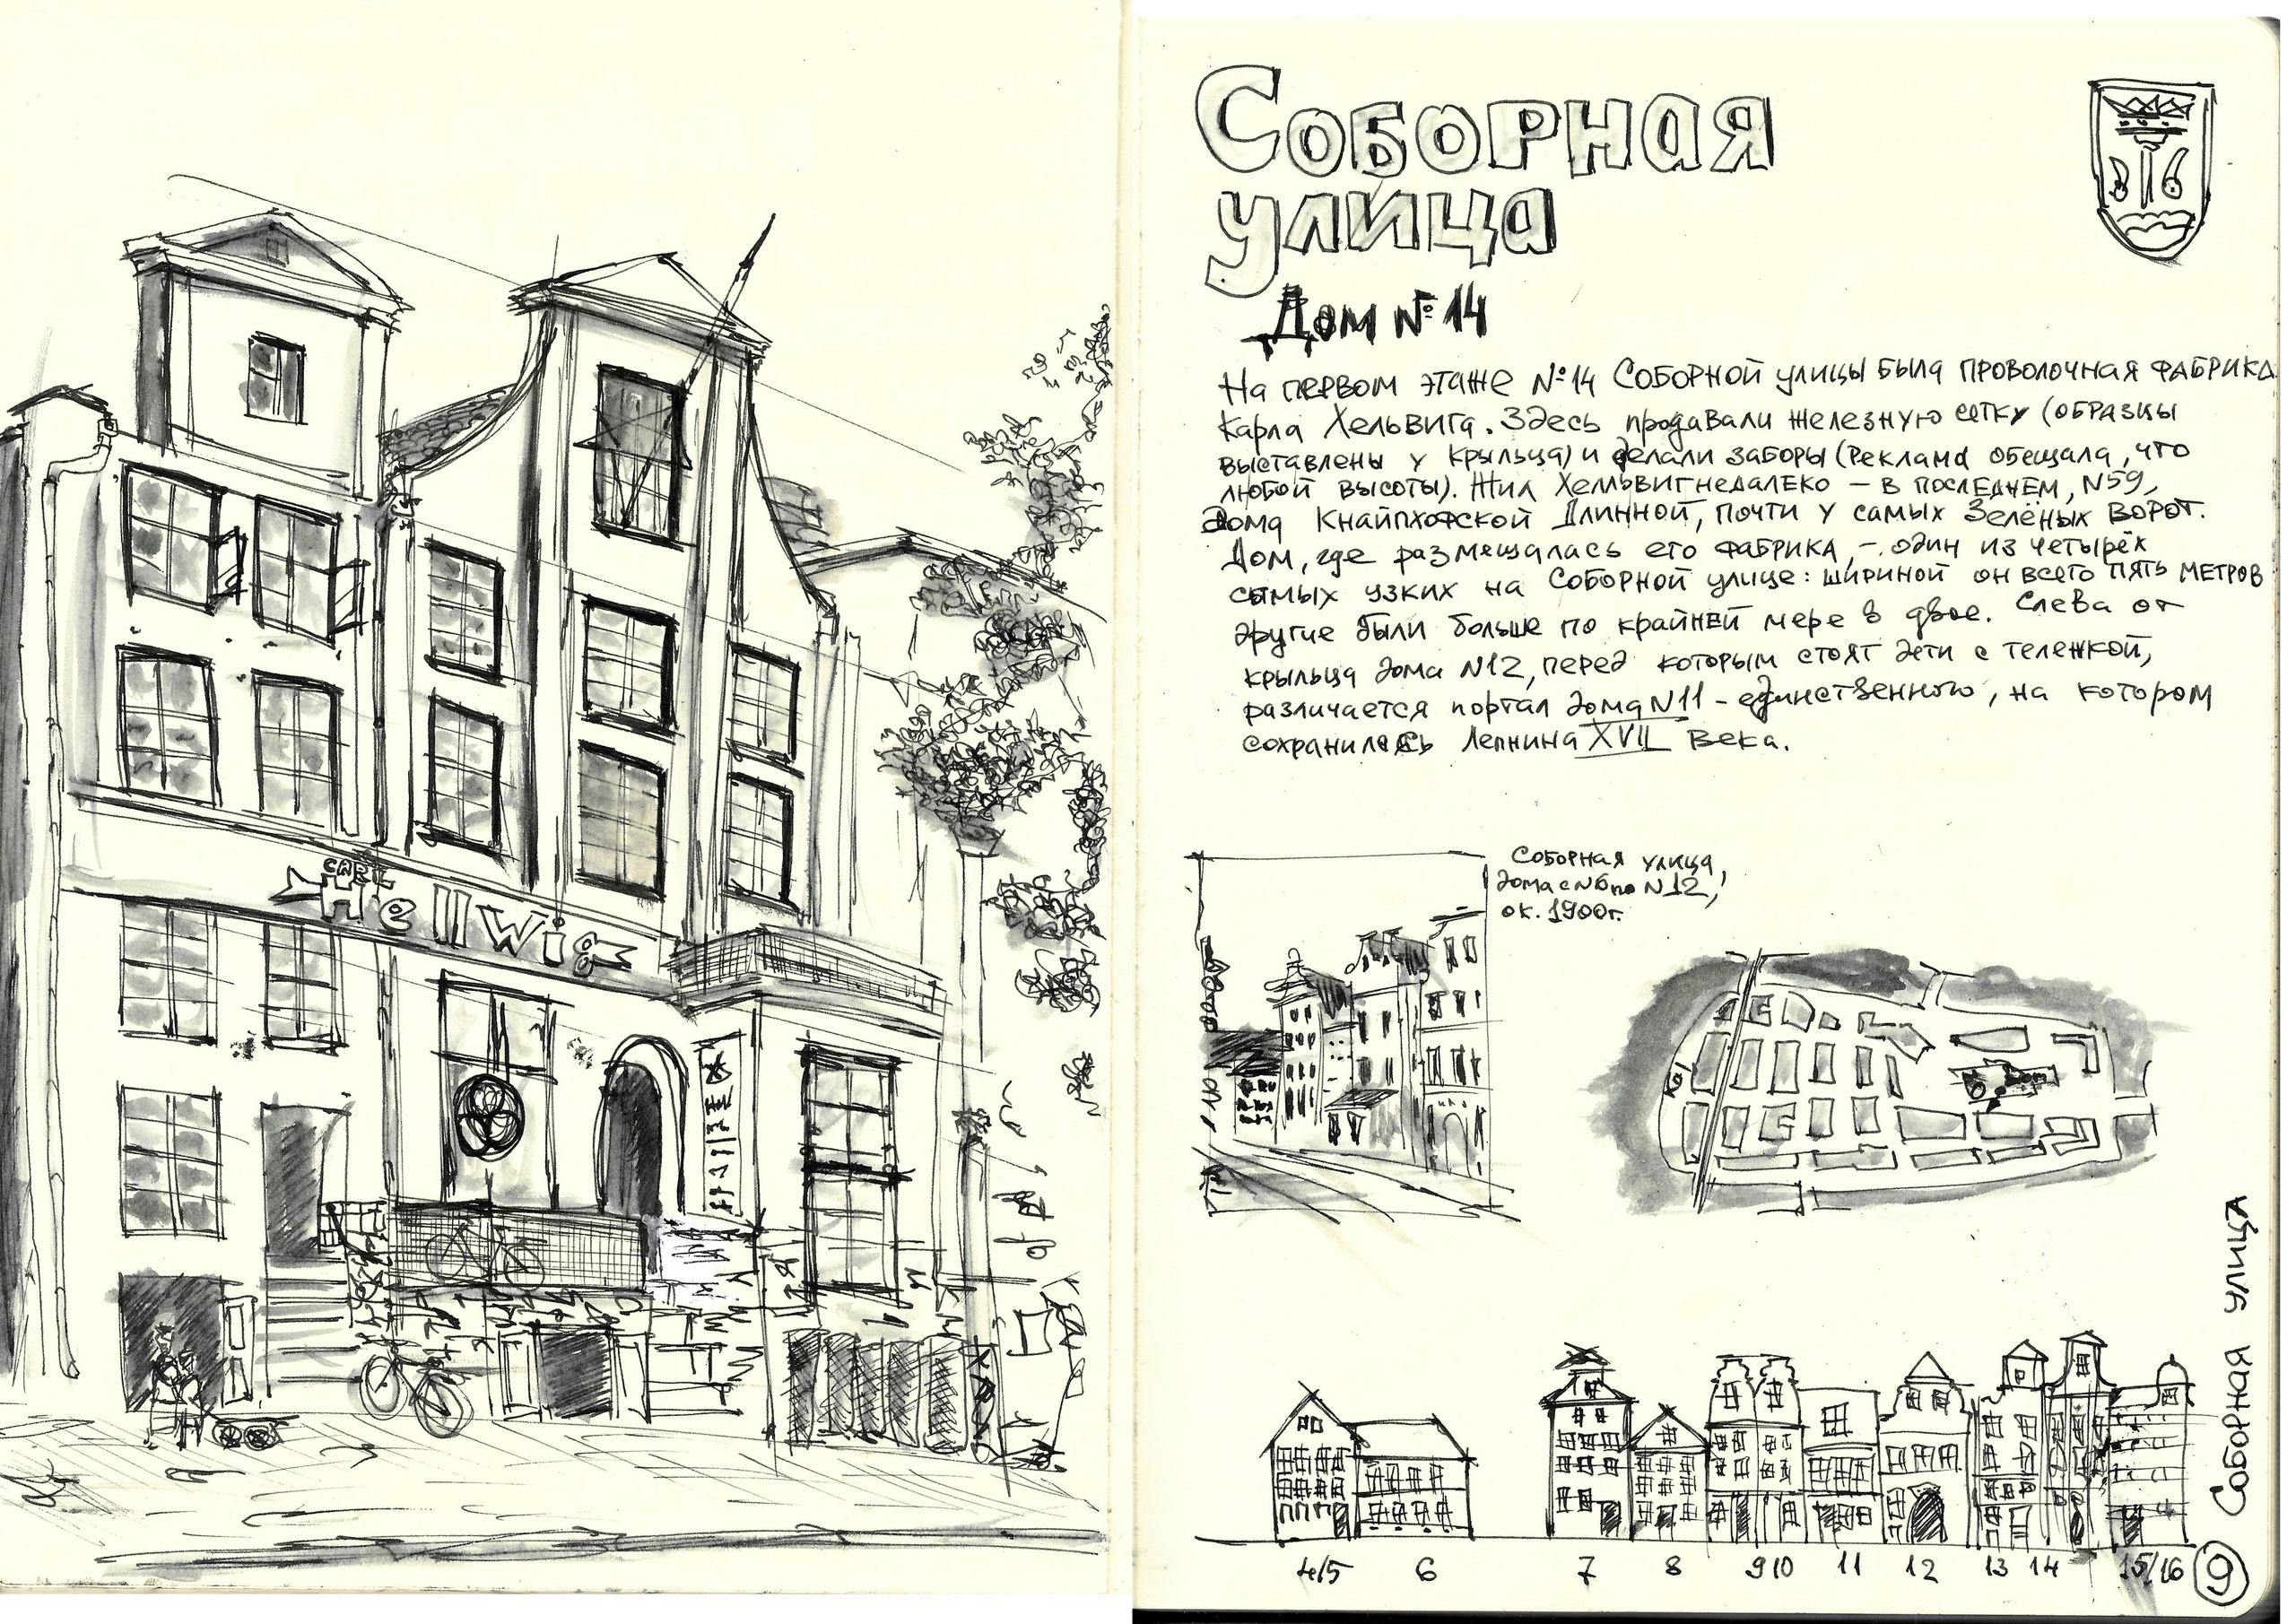 CARL
Hellwig
Соборная
улица
Дом №14
На первом этаже №14 Соборной улицы была проволочная фабрика
Карла Хельвига. Здесь продавали железную сетку (образцы
выставлены у крыльца) и делали заборы (реклама обещала, что
любой высоты). Жил Хелльвиг недалеко – в последнем, N59,
дома Кнайпхофской Длинной, почти у самых Зелёных ворот.
Дом, где размещалась его фабрика, – один из четырёх
самых узких на Соборной улице: шириной он всего пять метров
другие были больше по крайней мере в двое. Слева от
крыльца дома N12, перед которым стоят дети с тележкой,
различается портал дома N11 – единственного, на котором
сохранилась лепнина XVII века.
Соборная улица,
дома с N6 по N12,
ок. 1900г.
4/5 6 7 8 9 10 11 12 13 14 15/16
Соборная улица
9